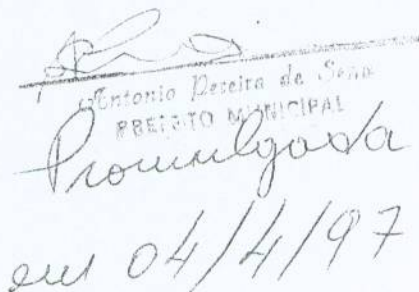 Antonio Pereira de Sena
PREFEITO MUNICIPAL
Promulgada
em 04/4/97